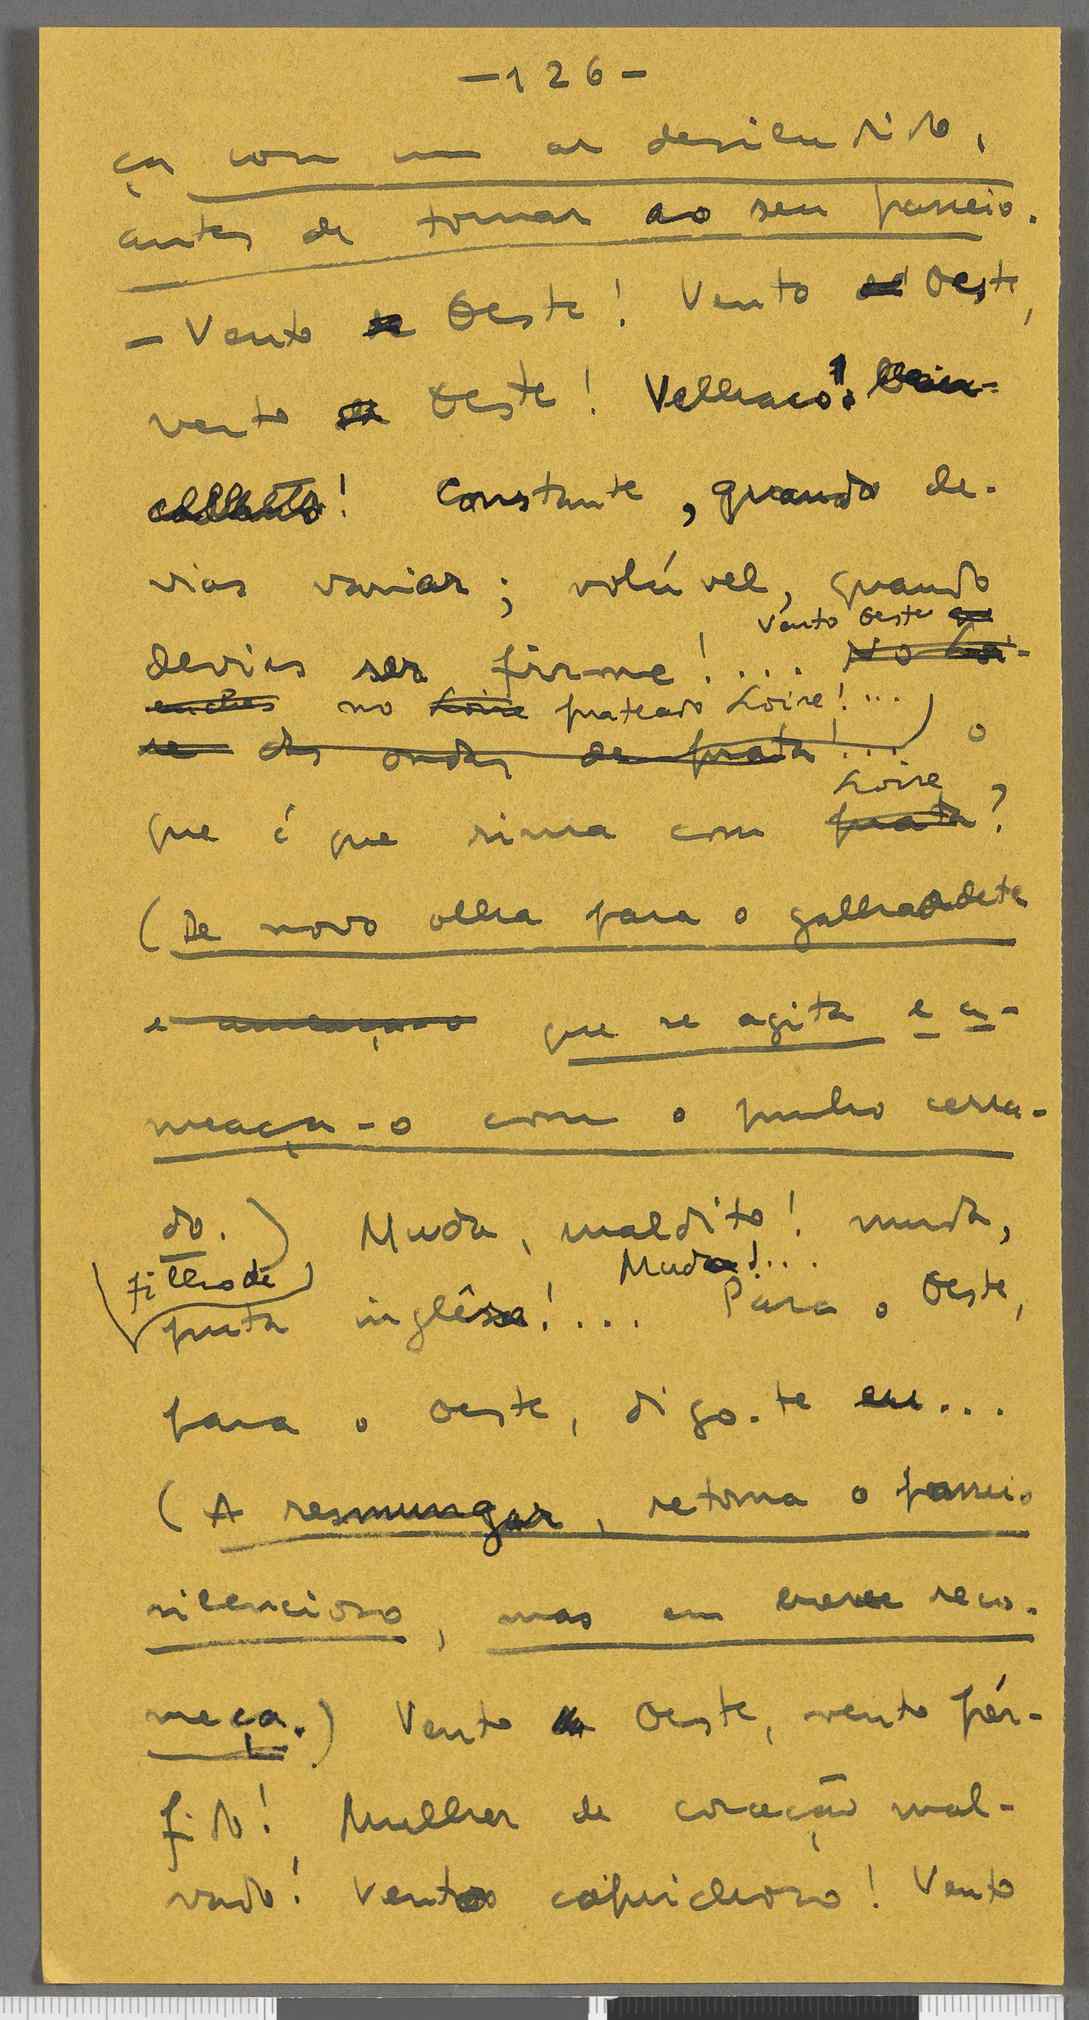 —126—
ça com um ar desiludido,
antes de tornar ao seu passeio.
— Vento de Oeste! Vento de Oeste,
vento de Oeste! Velhaco!
Constante, quando de-
vias variar; volúvel, quando
Vento Oeste
devias ser firme!.... No Loi-
enches no Loire prateado Loire!...
se das ondas de prata!...) o
Loire,
que é que rima com prata?
(De novo olha para o galhardete
e ameaça-o que se agita e a-
meaça-o com o punho cerra-
do.) Muda, maldito! muda,
filho de Muda!...
puta inglêsa!... Para o Oeste,
para o oeste, digo-te eu...
(A resmungar, retoma o passeio
silencioso, mas em breve reco-
meça.) Vento de Oeste, vento pér-
fido! Mulher de coração mal-
vado! Vento caprichoso! Vento